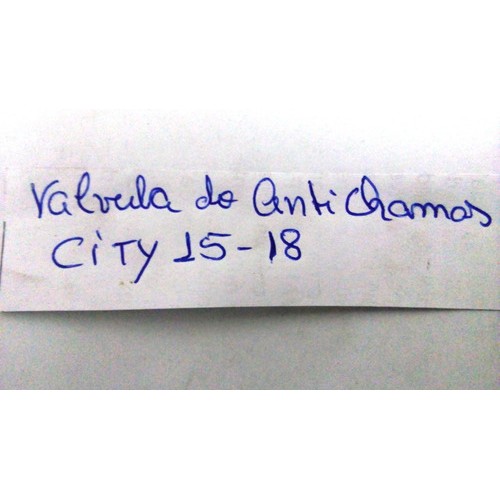 Valvula do Antichamas
CiTY 15-18